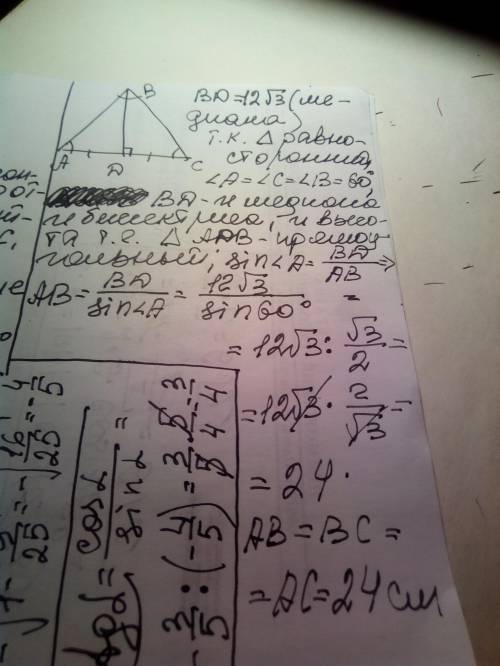 B
A
D
C
BD=12√3(ме-
диана)
т.к. △ равно-
сторонний,
∠A=∠C=∠B=60°
BD - и медиана
и биссектриса, и высо-
та т.е. △ ADB - прямоу
гольный; sin∠A= BD/AB ⇒
AB= BD/sin∠A = 12√3/sin60° =
= 12√3 : √3/2 =
=12√3 · 2/√3 =
= 24.
AB = BC =
= AC = 24 см
16/25 = -4/5
cosα/sinα =
3/5 : (-4/5) = 3/5